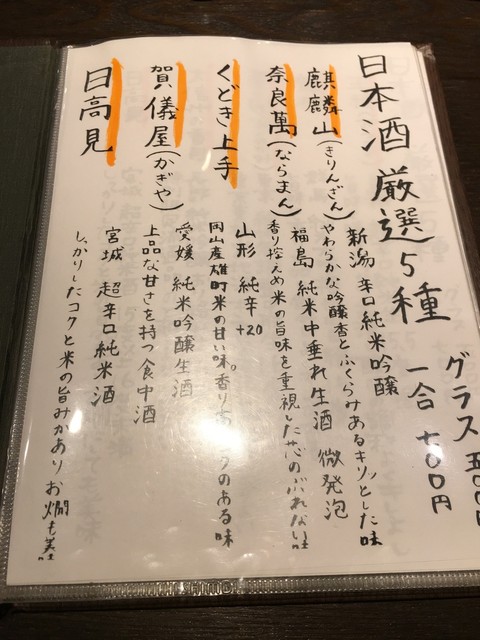 日本酒 厳選5種
グラス 五〇〇円
一合 七〇〇円
麒麟山(きりんざん)
新潟 辛口純米吟醸
やわらかな吟醸香とふくらみあるキリッとした味
奈良萬(ならまん)
福島 純米中垂れ生酒 微発泡
香り控えめ米の旨味を重視した芯のぶれない味
くどき上手
山形 純辛+20
岡山産雄町米の甘い味。香り のある味
賀儀屋(かぎや)
愛媛 純米吟醸生酒
上品な甘さを持つ食中酒
日高見
宮城 超辛口純米酒
しっかりしたコクと米の旨みがあり お燗も